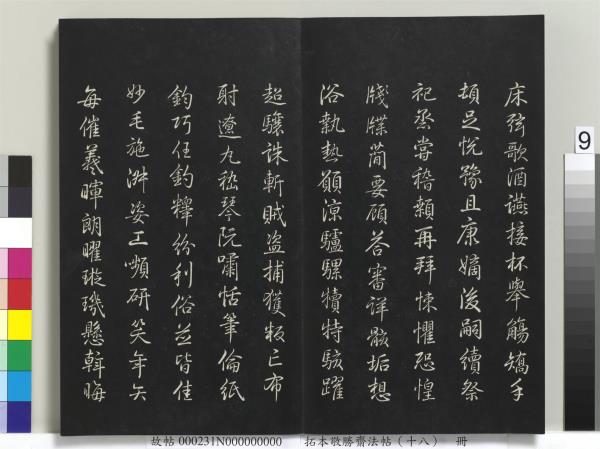 床弦歌酒讌接杯舉觴矯手
頓足悅豫且康嫡後嗣續祭
祀烝甞稽顙再拜悚懼恐惶
牋牒簡要顧荅審詳骸垢想
浴執熱願涼驢騾犢特駭躍
超驤誅斬賊盜捕獲叛亡布
射遼丸嵇琴阮嘯恬筆倫紙
鈞巧任釣釋紛利俗並皆佳
妙毛施淑姿工顰妍笑年矢
每催羲暉朗曜璇璣懸斡晦
9
故帖 000231N000000000 拓本敬勝齋法帖（十八） 冊